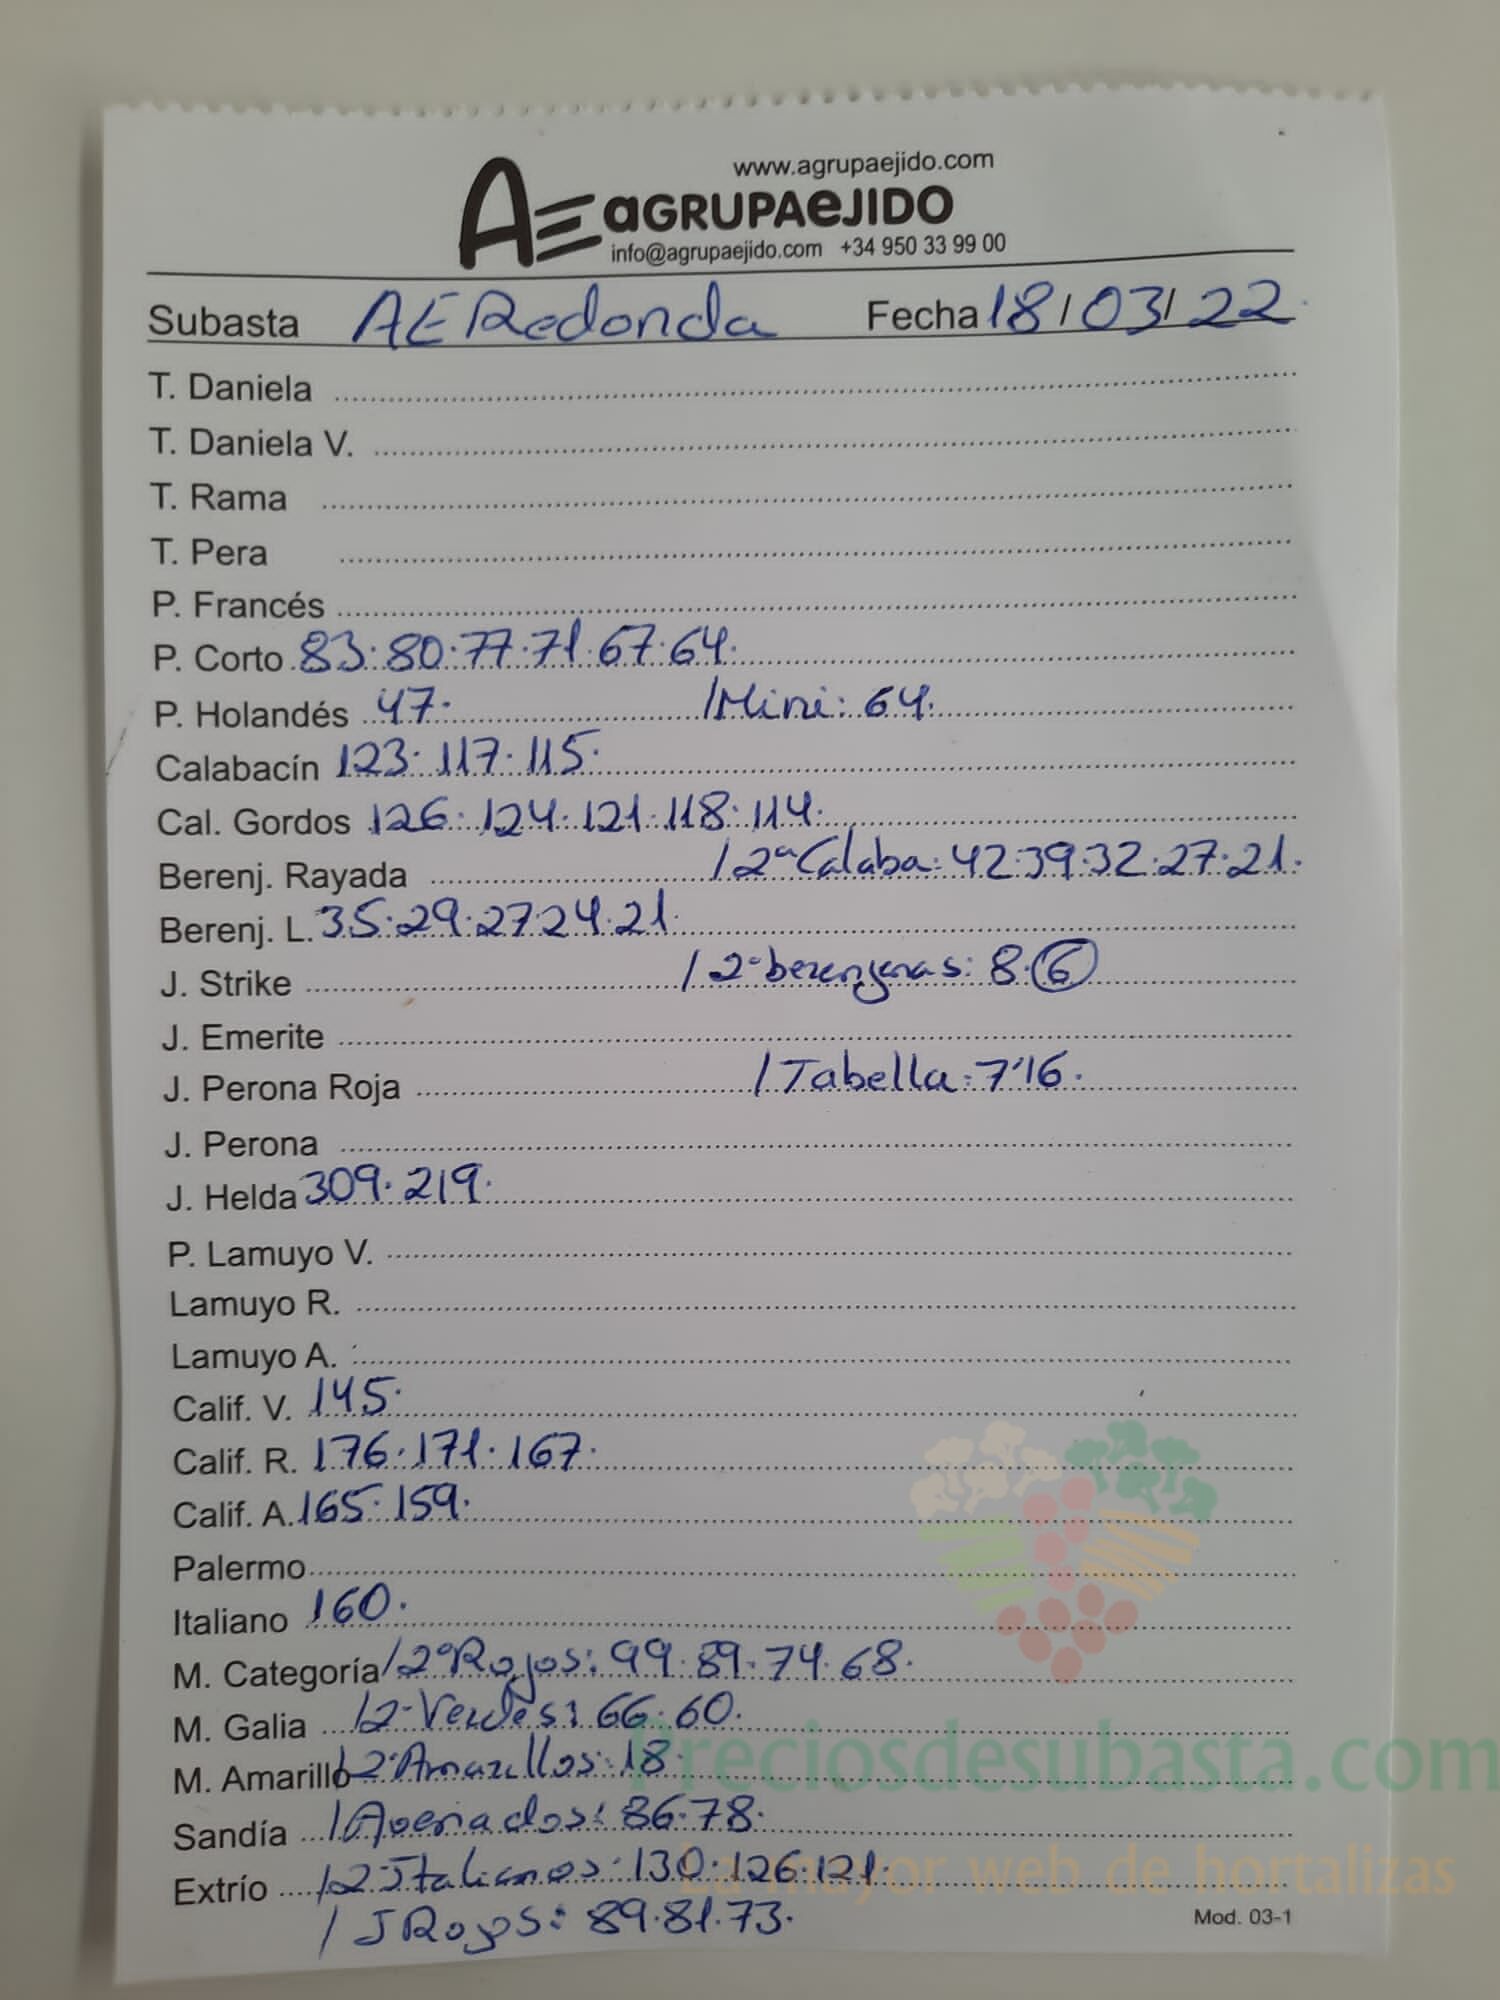 www.agrupaejido.com
AE aGRUPAeJIDO
info@agrupaejido.com +34 950 33 99 00
Subasta AE Redonda Fecha 18/03/22.
T. Daniela
T. Daniela V.
T. Rama
T. Pera
P. Francés
P. Corto 83.80.77.71.67.64.
P. Holandés 47. /Mini: 64.
Calabacín 123.117.115.
Cal. Gordos 126.124.121.118.114.
Berenj. Rayada /2ª Calaba: 42.39.32.27.21.
Berenj. L. 35.29.27.24.21.
J. Strike /2ª berenjenas: 8.6
J. Emerite
J. Perona Roja /Tabella: 7'16.
J. Perona
J. Helda 309.219.
P. Lamuyo V.
Lamuyo R.
Lamuyo A.
Calif. V. 145.
Calif. R. 176.171.167.
Calif. A. 165.159.
Palermo
Italiano 160.
M. Categoría /2º Rojos: 99.89.74.68.
M. Galia /2º Verdes: 66.60.
M. Amarillo /2º Amarillos: 18.
Sandía /Averiados: 86.78.
Extrío /2º Italianos: 130.126.121.
/J Rojos: 89.81.73.
Mod. 03-1
Preciosdesubasta.com
La mayor web de hortalizas